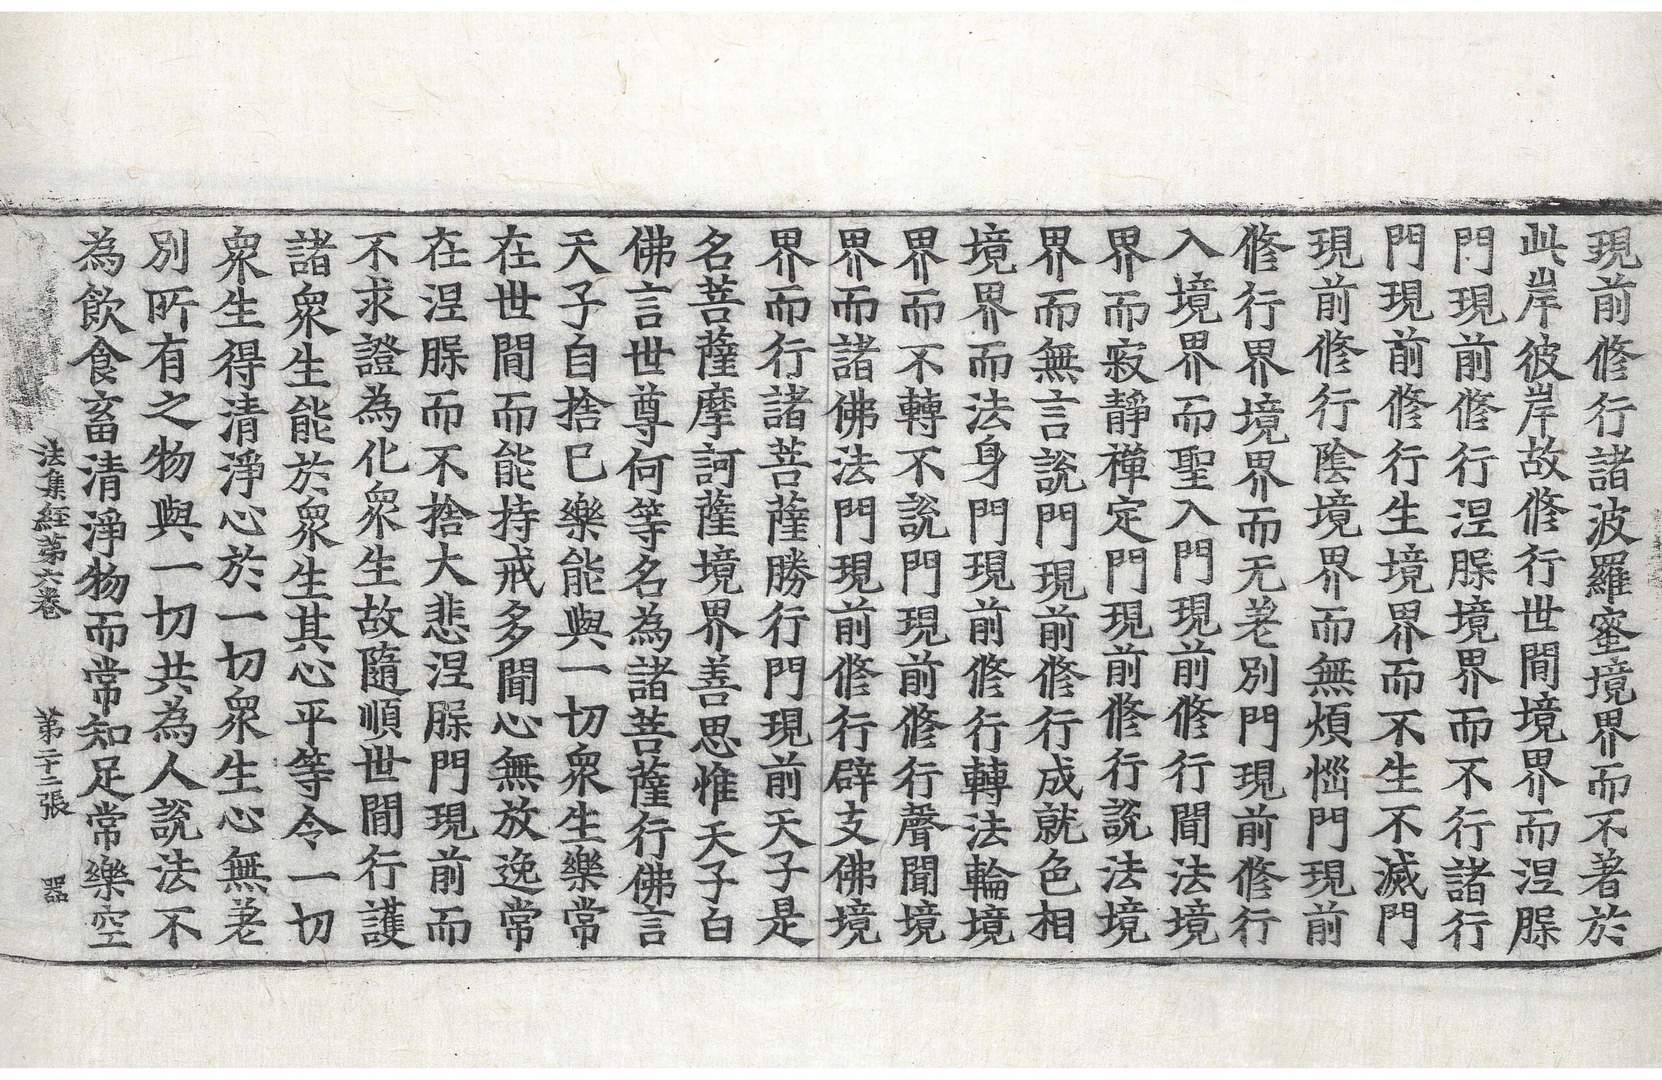 現前修行諸波羅蜜境界而不著於
此岸彼岸故修行世間境界而涅脲
門現前修行涅脲境界而不行諸行
門現前修行生境界而不生不滅門
現前修行陰境界而無煩惱門現前
修行界境界而无差別門現前修行
入境界而聖入門現前修行聞法境
界而寂靜禪定門現前修行說法境
界而無言說門現前修行成就色相
境界而法身門現前修行轉法輪境
界而不轉不說門現前修行聲聞境
界而諸佛法門現前修行辟支佛境
界而行諸菩薩勝行門現前天子是
名菩薩摩訶薩境界善思惟天子白
佛言世尊何等名為諸菩薩行佛言
天子自捨已樂能與一切衆生樂常
在世間而能持戒多聞心無放逸常
在涅脲而不捨大悲涅脲門現前而
不求證為化衆生故隨順世間行護
諸衆生能於衆生其心平等令一切
衆生得清淨心於一切衆生心無差
別所有之物與一切共為人說法不
為飲食畜清淨物而常知足常樂空
法集經第六卷 第二十二張 器